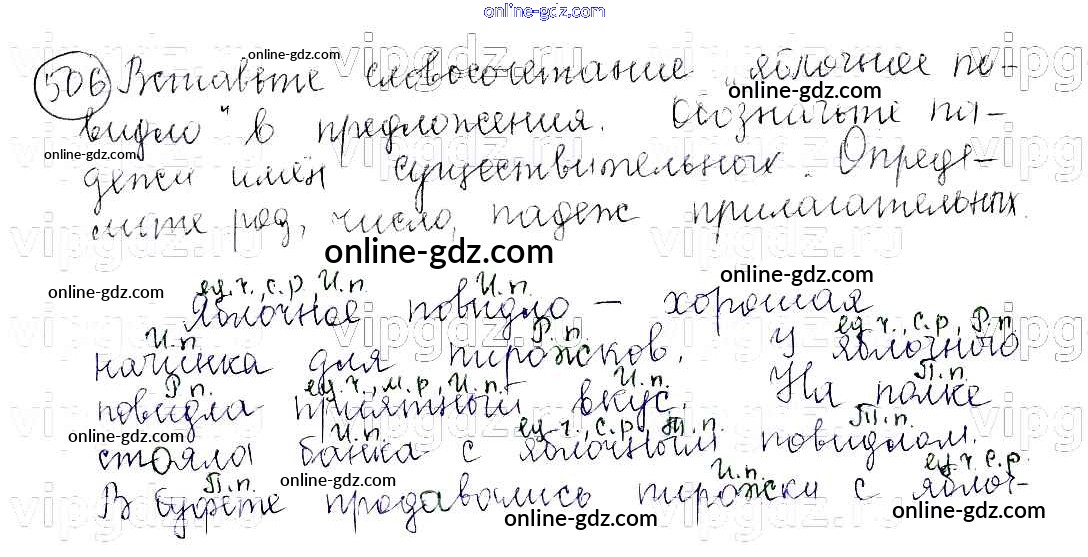 506 Вставьте словосочетание „яблочное по-
видло“ в предложения. Обозначьте па-
дежи имён существительных. Опреде-
лите род, число, падеж прилагательных.
ед.ч., с.р., И.п. И.п.
Яблочное повидло – хорошая
И.п. Р.п. ед.ч., с.р., Р.п.
начинка для пирожков. У яблочного
Р.п. ед.ч., м.р., И.п. И.п. П.п.
повидла приятный вкус. На полке
И.п. ед.ч., с.р., Т.п. Т.п.
стояла банка с яблочным повидлом.
П.п. И.п. ед.ч. с.р.
В буфете продавались пирожки с яблоч-
online-gdz.com
online-gdz.com
online-gdz.com
online-gdz.com
online-gdz.com
online-gdz.com
online-gdz.com
online-gdz.com
online-gdz.com
online-gdz.com
online-gdz.com
online-gdz.com